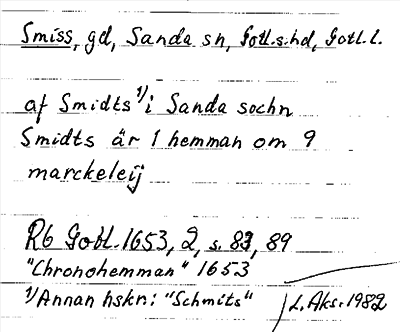 Smiss, gd, Sanda sn, Gotl.s:hd, Gotl.l.
af Smidts 1)i Sanda sochn
Smidts är 1 hemman om 9
marckeleij
Rb Gotl. 1653, 2, s. 83, 89
"Chronohemman" 1653
1)/Annan hskr: "Schmits" / L. Aks. 1982